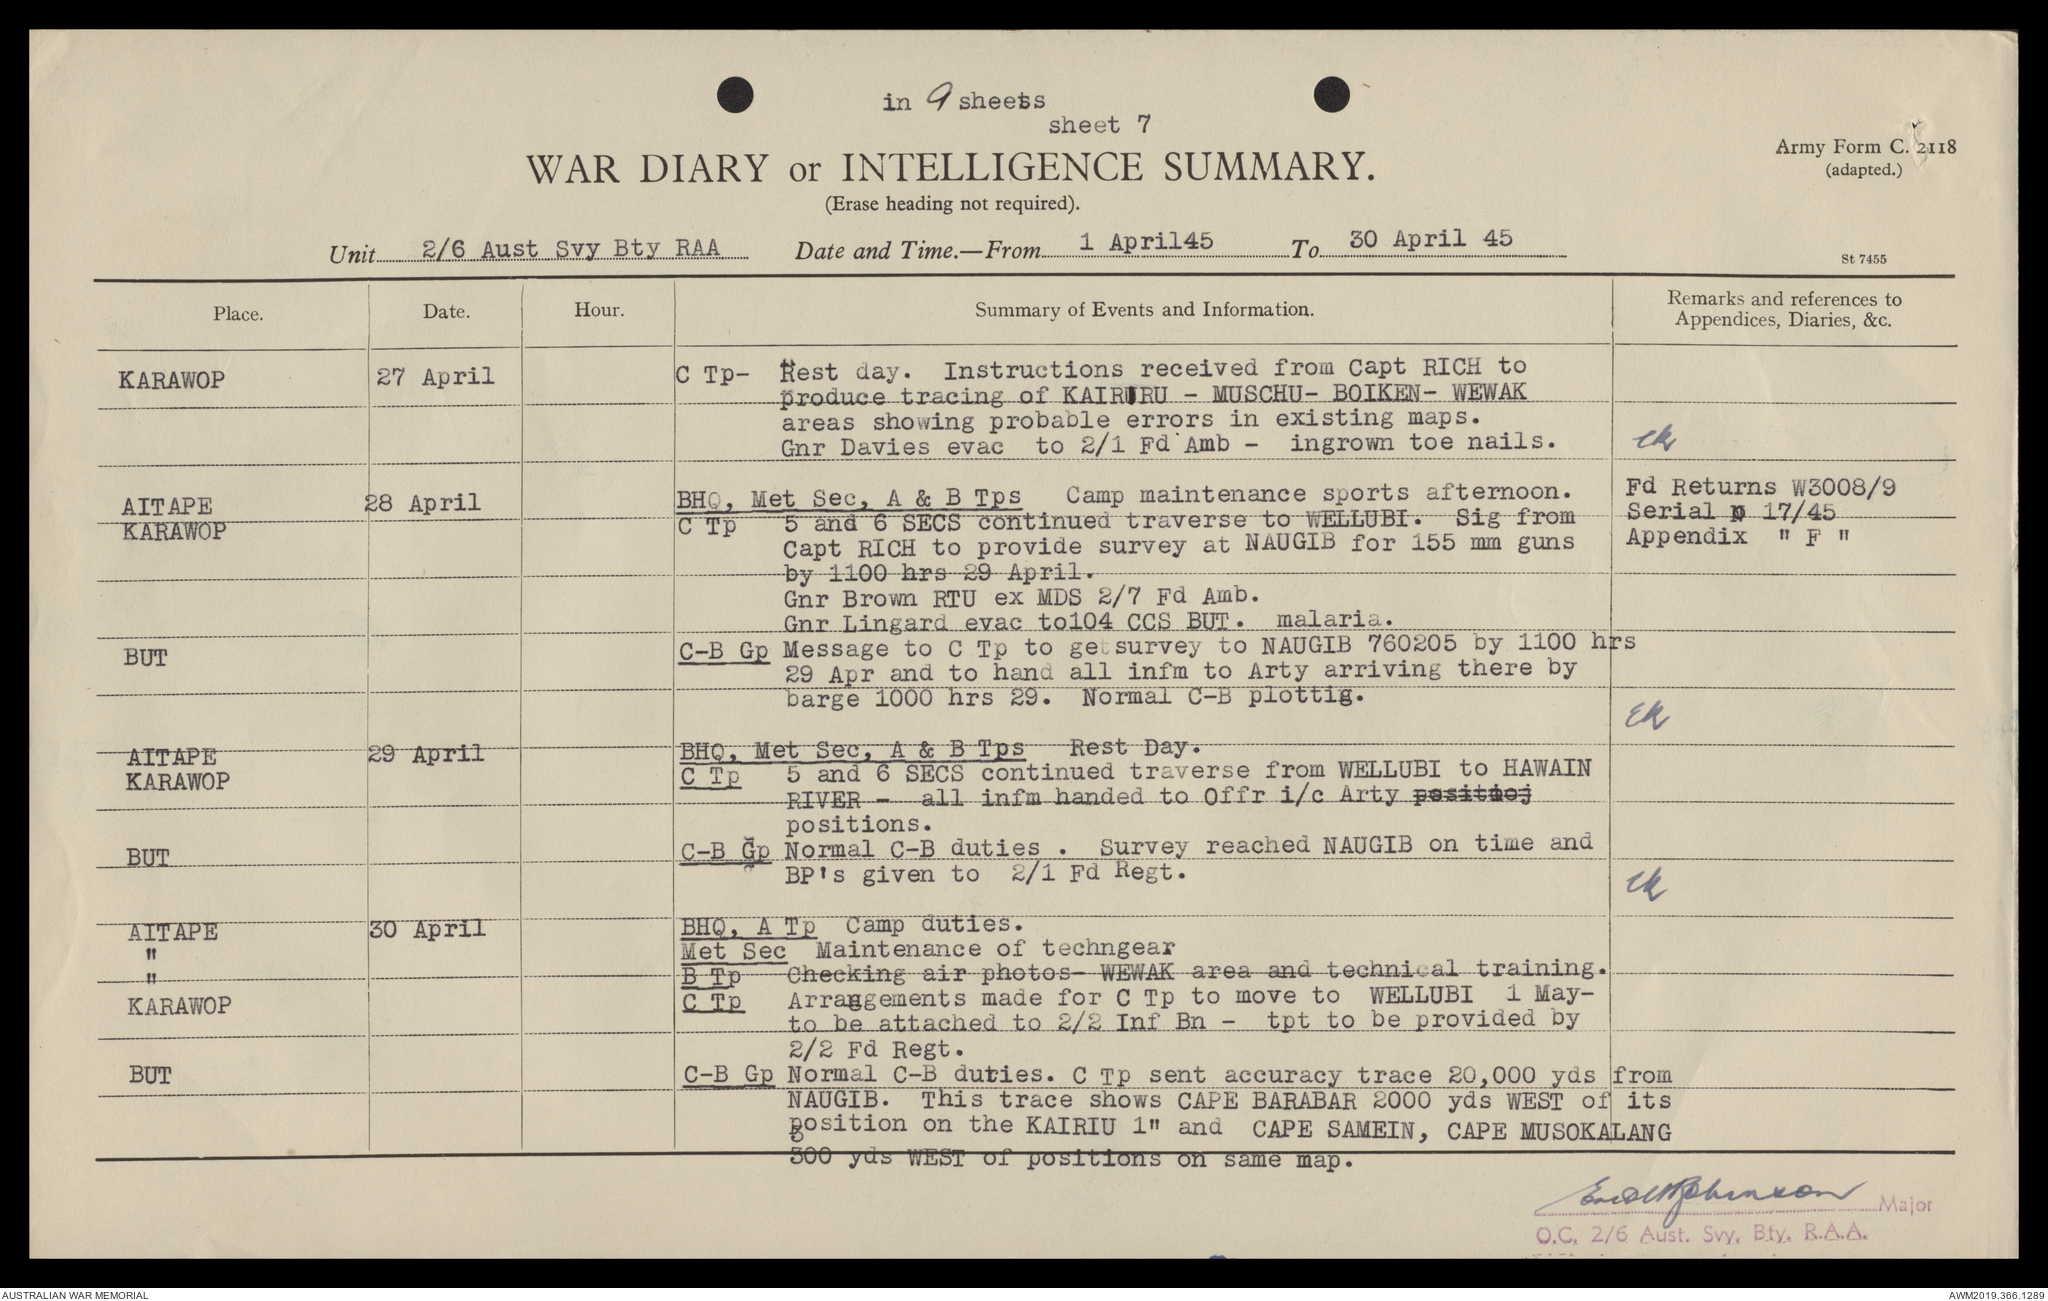 in 9 sheets
sheet 7
WAR DIARY or INTELLIGENCE SUMMARY.
(Erase heading not required).
Army Form C. 2118
(adapted.)
Unit 2/6 Aust Svy Bty RAA Date and Time.—From 1 April45 To 30 April 45
St 7455
Place. Date. Hour. Summary of Events and Information. Remarks and references to
Appendices, Diaries, &c.
KARAWOP 27 April C Tp- Rest day. Instructions received from Capt RICH to
produce tracing of KAIRURU - MUSCHU- BOIKEN- WEWAK
areas showing probable errors in existing maps.
Gnr Davies evac to 2/1 Fd Amb - ingrown toe nails.
AITAPE 28 April BHQ, Met Sec, A & B Tps Camp maintenance sports afternoon. Fd Returns W3008/9
KARAWOP C Tp 5 and 6 SECS continued traverse to WELLUBI. Sig from Serial p 17/45
Capt RICH to provide survey at NAUGIB for 155 mm guns Appendix " F "
by 1100 hrs 29 April.
Gnr Brown RTU ex MDS 2/7 Fd Amb.
Gnr Lingard evac to104 CCS BUT. malaria.
BUT C-B Gp Message to C Tp to get survey to NAUGIB 760205 by 1100 hrs
29 Apr and to hand all infm to Arty arriving there by
barge 1000 hrs 29. Normal C-B plottig.
AITAPE 29 April BHQ, Met Sec, A & B Tps Rest Day.
KARAWOP C Tp 5 and 6 SECS continued traverse from WELLUBI to HAWAIN
RIVER - all infm handed to Offr i/c Arty positioj
positions.
BUT C-B Gp Normal C-B duties . Survey reached NAUGIB on time and
BP's given to 2/1 Fd Regt.
AITAPE 30 April BHQ, A Tp Camp duties.
" Met Sec Maintenance of techngear
" B Tp Checking air photos- WEWAK area and technical training.
KARAWOP C Tp Arrangements made for C Tp to move to WELLUBI 1 May-
to be attached to 2/2 Inf Bn - tpt to be provided by
2/2 Fd Regt.
BUT C-B Gp Normal C-B duties. C Tp sent accuracy trace 20,000 yds from
NAUGIB. This trace shows CAPE BARABAR 2000 yds WEST of its
position on the KAIRIU 1" and CAPE SAMEIN, CAPE MUSOKALANG
300 yds WEST of positions on same map.
Major
O.C. 2/6 Aust. Svy. Bty. R.A.A.
AUSTRALIAN WAR MEMORIAL
AWM2019.366.1289